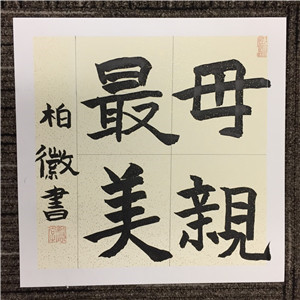 母親
最美
柏徽書